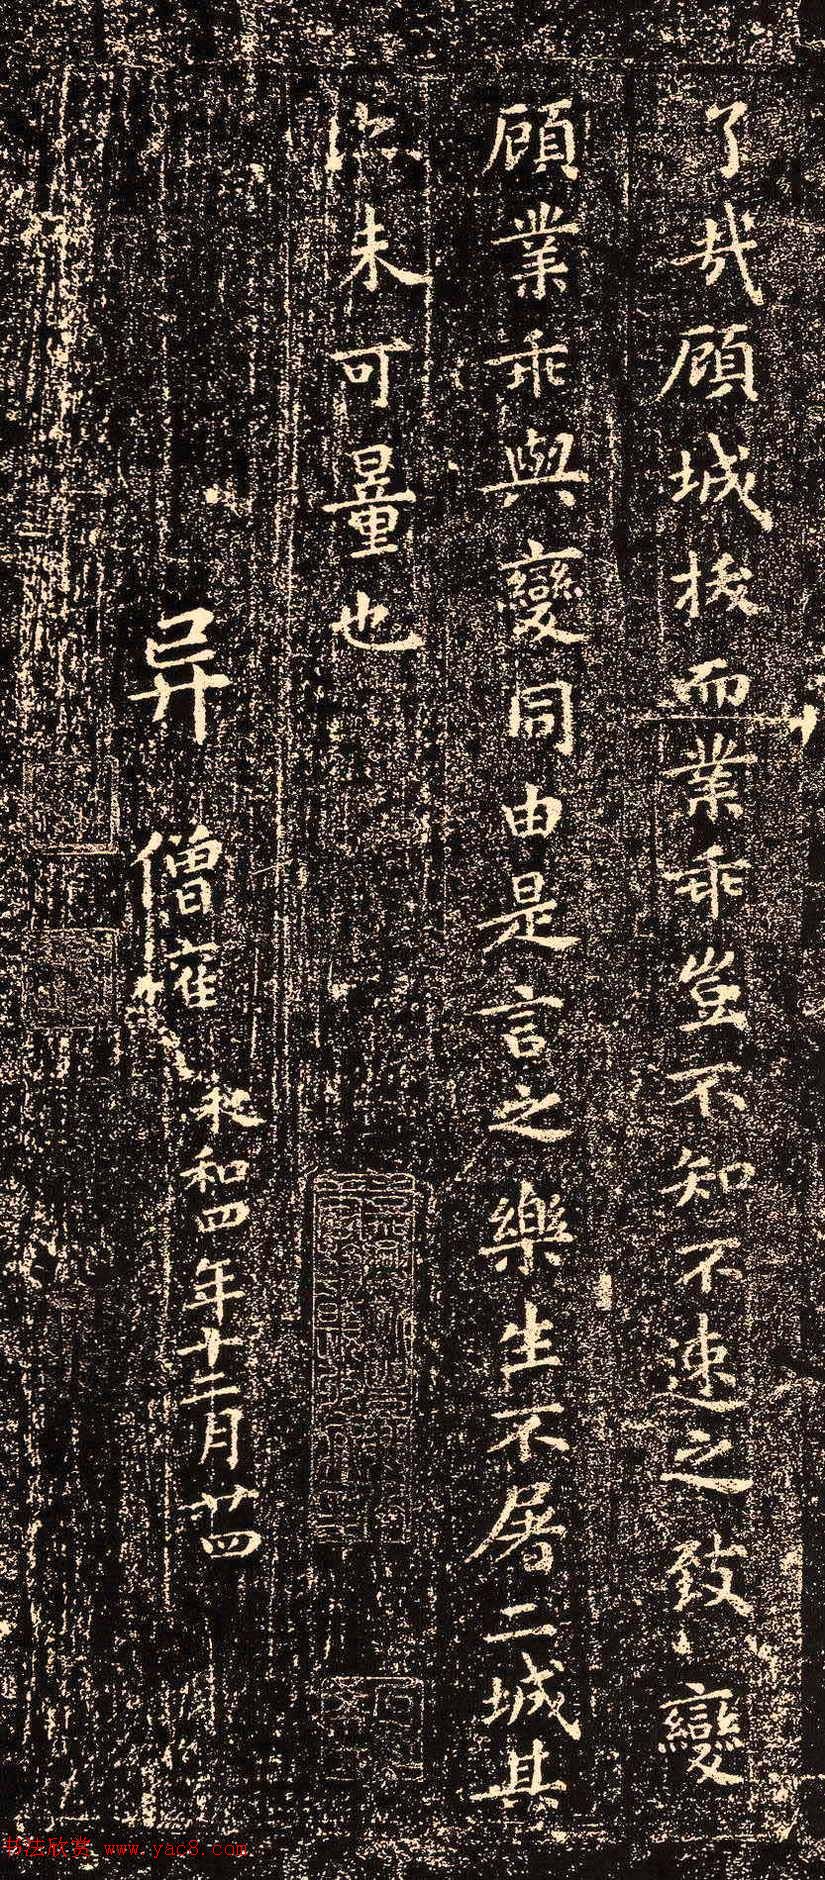 了哉顧城拔而業乖豈不知不速之致變
顧業乖與變同由是言之樂生不屠二城其
未可量也
异
僧權
永和四年十二月廿四
书法欣赏 www.yac8.com